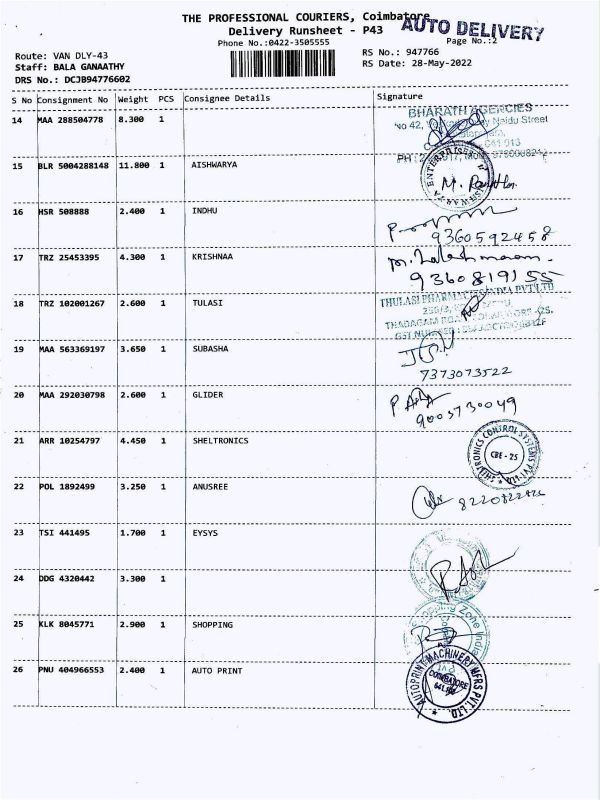 THE PROFESSIONAL COURIERS, Coimbatore
AUTO DELIVERY
Delivery Runsheet - P43
Phone No.:0422-3505555
Page No.:2
Route: VAN DLY-43
Staff: BALA GANAATHY
DRS No.: DCJB94776602
RS No.: 947766
RS Date: 28-May-2022
S No Consignment No Weight PCS Consignee Details Signature
14 MAA 288504778 8.300 1
BHARATH AGENCIES
No 42, Naidu Street
15 BLR 5004288148 11.800 1 AISHWARYA
16 HSR 508888 2.400 1 INDHU
9360592458
17 TRZ 25453395 4.300 1 KRISHNAA
9360819155
18 TRZ 102001267 2.600 1 TULASI
THULASI PHARMACIES INDIA PVT LTD
19 MAA 563369197 3.650 1 SUBASHA
7373073522
20 MAA 292030798 2.600 1 GLIDER
9003730049
21 ARR 10254797 4.450 1 SHELTRONICS
SHELTRONICS CONTROL SYSTEMS PVT LTD
CBE - 25
22 POL 1892499 3.250 1 ANUSREE
23 TSI 441495 1.700 1 EYSYS
24 DDG 4320442 3.300 1
25 KLK 8045771 2.900 1 SHOPPING
26 PNU 404966553 2.400 1 AUTO PRINT
AUTOPRINT MACHINERY MFRS PVT. LTD.
COIMBATORE